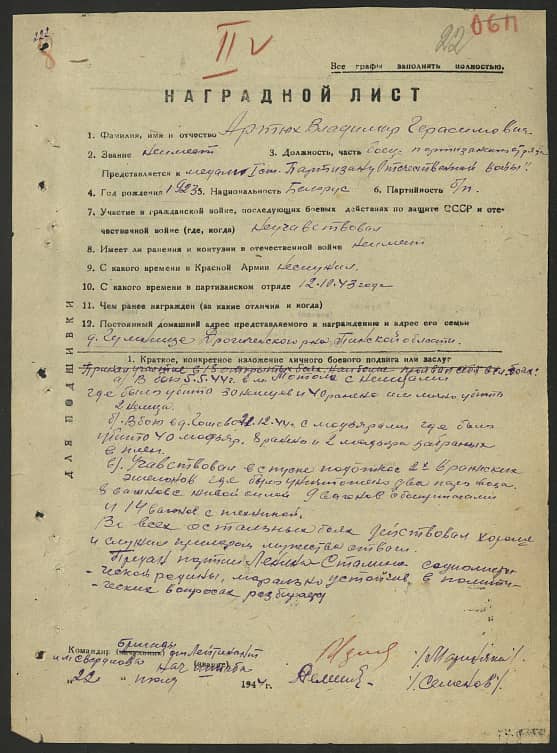 222
8
II v
22
06П
Все графы заполнять полностью.
НАГРАДНОЙ ЛИСТ
1. Фамилия, имя и отчество Артюх Владимир Герасимович
2. Звание неимеет 3. Должность, часть боец партизанского отряда
Представляется к медали I ст. Партизану Отечественной войны".
4. Год рождения 1923 5. Национальность Белорус 6. Партийность б/п.
7. Участие в гражданской войне, последующих боевых действиях по защите СССР и оте-
чественной войне (где, когда) Неучавствовал
8. Имеет ли ранения и контузии в отечественной войне неимеет
9. С какого времени в Красной Армии неслужил.
10. С какого времени в партизанском отряде 12.10.43 года
11. Чем ранее награжден (за какие отличия и когда)
12. Постоянный домашний адрес представляемого к награждению и адрес его семьи
д. Дрогиченского р-на Пинской области.
ДЛЯ ПОДШИВКИ
1. Краткое, конкретное изложение личного боевого подвига или заслуг
а) В бою 5.5.44г. в м. Мотоль с немцами
где было убито 30 немцев и 40 ранено им лично убито
2 немца.
б) В бою в д. 22.12.44г. с модьярами где было
убито 40 модьяр. ранено и 2 модьяра забраных
в плен.
в) Учавствовал в спуске подоткос 2х вражеских
эшелонов где было уничтожено два паровоза.
8 вагонов с живой силой 9 вагонов с боеприпасами
и 14 вагонов с техникой.
Во всех остальных боях действовал хорошо
и служил примером мужества отваги.
Предан партии Ленина-Сталина социалисти-
-ческой родины, морально устойчив, в полити-
-ческих вопросах разбираеца
Командир бригады
им. Свердлова Нач. штаба (звание)
"22" июля 1944 г. /Семенов/.